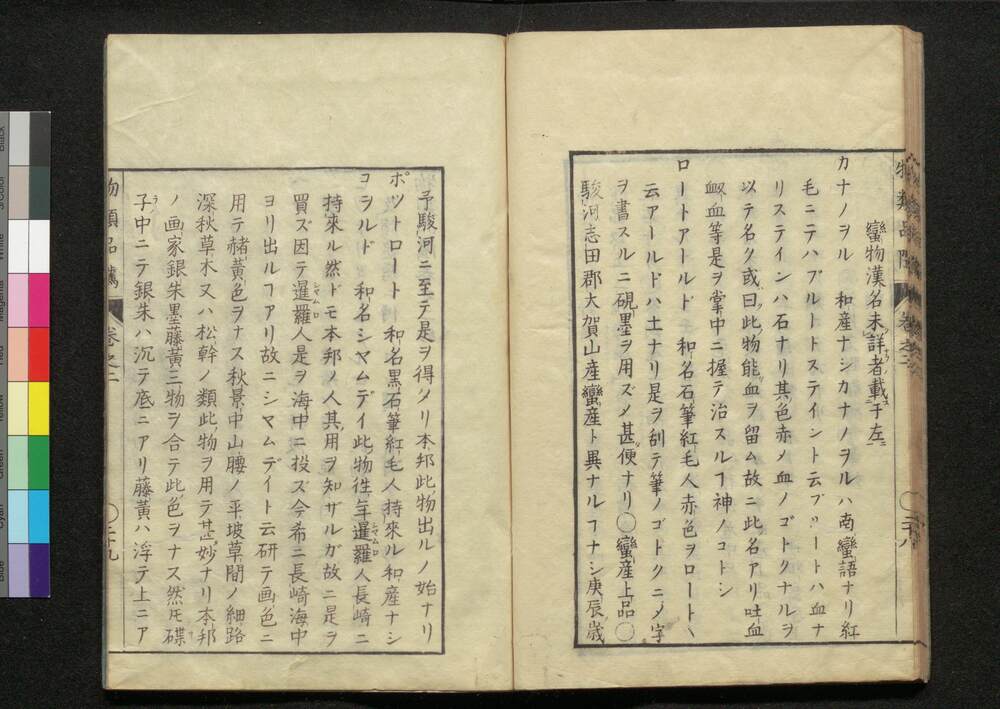 物類品隲 巻之二 〇二十八
蠻物漢名未詳者載于左ニ
カナノヲル 和産ナシカナノヲルハ南蠻語ナリ紅
毛ニテハブルートステイント云ブルートハ血ナ
リステインハ石ナリ其色赤乄血ノゴトクナルヲ
以テ名ク或曰此物能血ヲ留ム故ニ此名アリ吐血
衂血等是ヲ掌中ニ握テ治スルヿ神ノコトシ
ロートアールド 和名石筆紅毛人赤色ヲロートヽ
云アールドハ土ナリ是ヲ刮テ筆ノゴトクニ乄字
ヲ書スルニ硯墨ヲ用ズ乄甚便ナリ〇蠻産上品〇
駿河志田郡大賀山産蠻産ト異ナルヿナシ庚辰歳
予駿河ニ至テ是ヲ得タリ本邦此物出ルノ始ナリ
ポットロート 和名黒石筆紅毛人持來ル和産ナシ
コヲルド 和名シヤムデイ此物徃年暹羅人長崎ニ
持來ル然ドモ本邦ノ人其用ヲ知ザルガ故ニ是ヲ
買ズ因テ暹羅人是ヲ海中ニ投ズ今希ニ長崎海中
ヨリ出ルヿアリ故ニシヤムデイト云研テ画色ニ
用テ赭黄色ヲナス秋景中山腰ノ平坡草間ノ細路
深秋草木又ハ松幹ノ類此物ヲ用テ甚妙ナリ本邦
ノ画家銀朱墨藤黄三物ヲ合テ此色ヲナス然𪜈碟
子中ニテ銀朱ハ沉テ底ニアリ藤黄ハ浮テ上ニア
物類品隲 巻之二 〇二十九